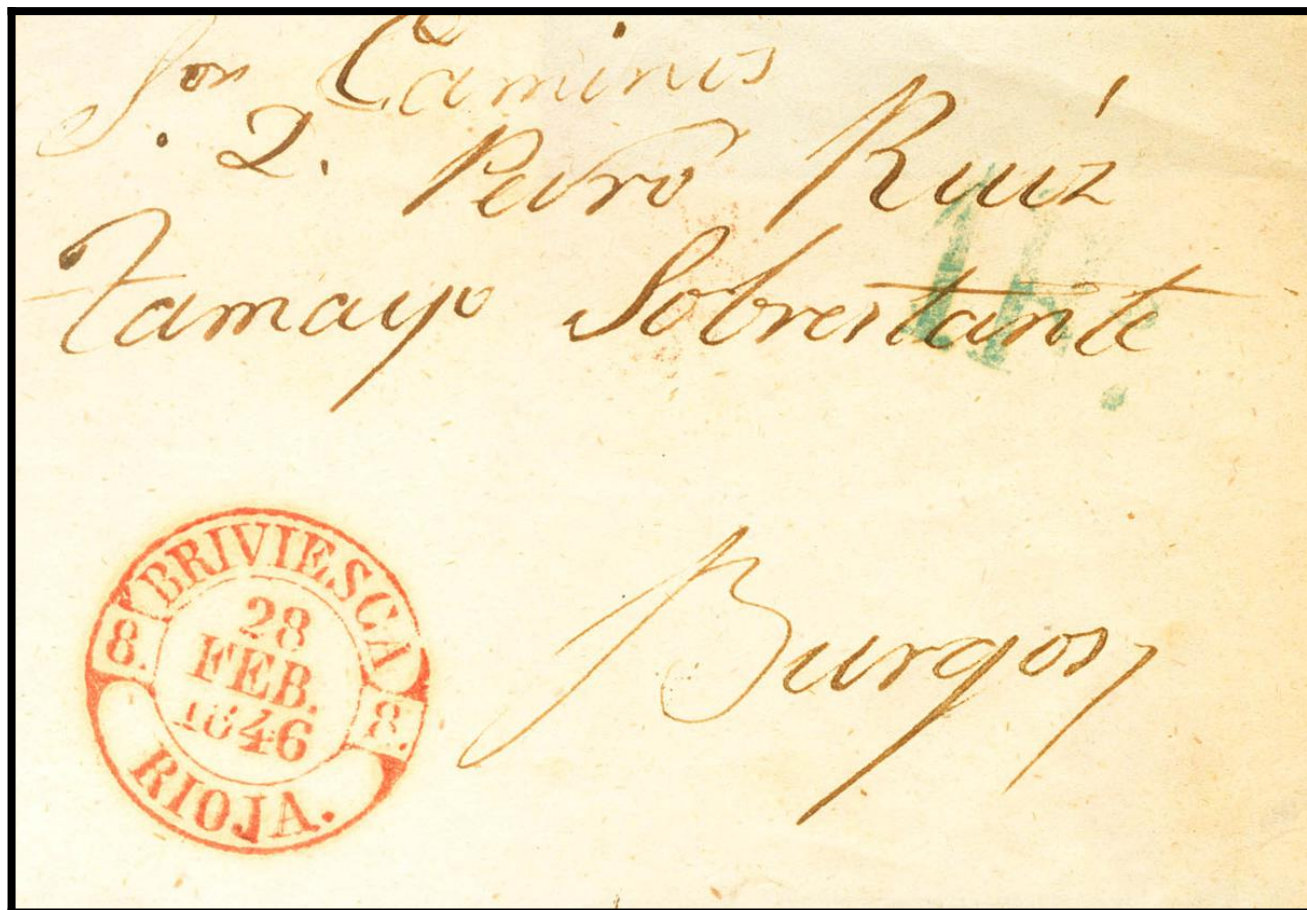 Sor Caminos
D. Pedro Ruíz
Tamayo Sobrestante
1R.
Burgos,
BRIVIESCA
8. 28 8.
FEB.
1846
RIOJA.